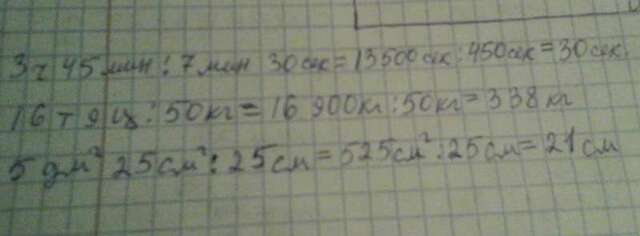 3ч 45 мин : 7 мин 30 сек = 13500 сек : 450 сек = 30 сек
16 т 9 ц : 50 кг = 16 900 кг : 50 кг = 338 кг
5 дм² 25 см² : 25 см = 525 см² : 25 см = 21 см